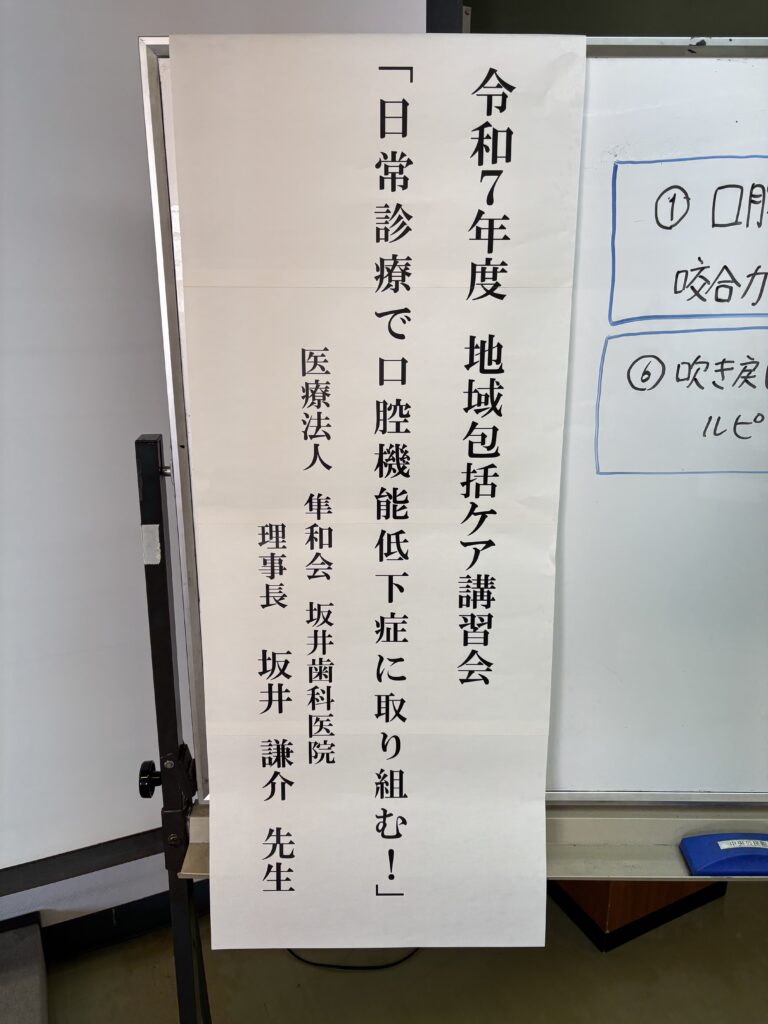 令和7年度 地域包括ケア講習会
「日常診療で口腔機能低下症に取り組む!」
医療法人 隼和会 坂井歯科医院
理事長 坂井 謙介 先生
① 口腔
咬合力
⑥ 吹き戻し
ルピ